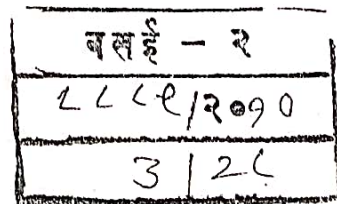 वसई - २
८८८९/२०१०
३/२८